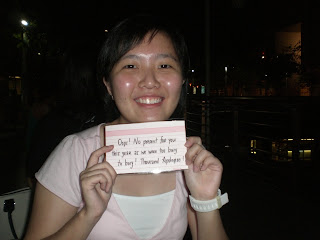 Oops! No present for you
this year as we were too busy
to buy! Thousand Apologies!